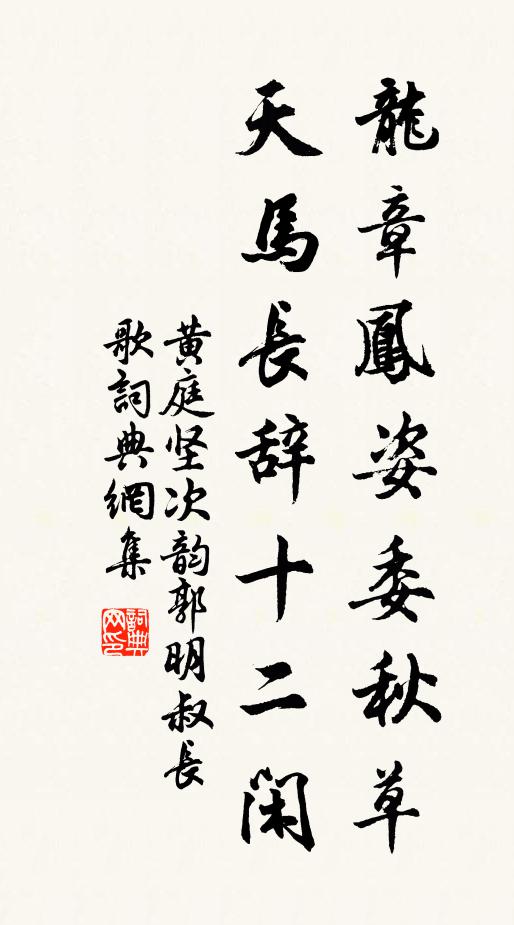 龍章鳳姿委秋草
天馬長辞十二閑
黄庭坚次韵郭明叔長
歌詞典網集
詞典
网印